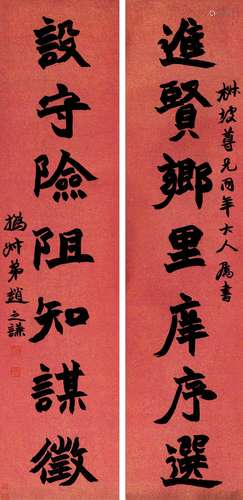 進賢鄉里庠序選
樹坡尊兄同年大人屬書
設守險阻知謀徵
撝叔弟趙之謙